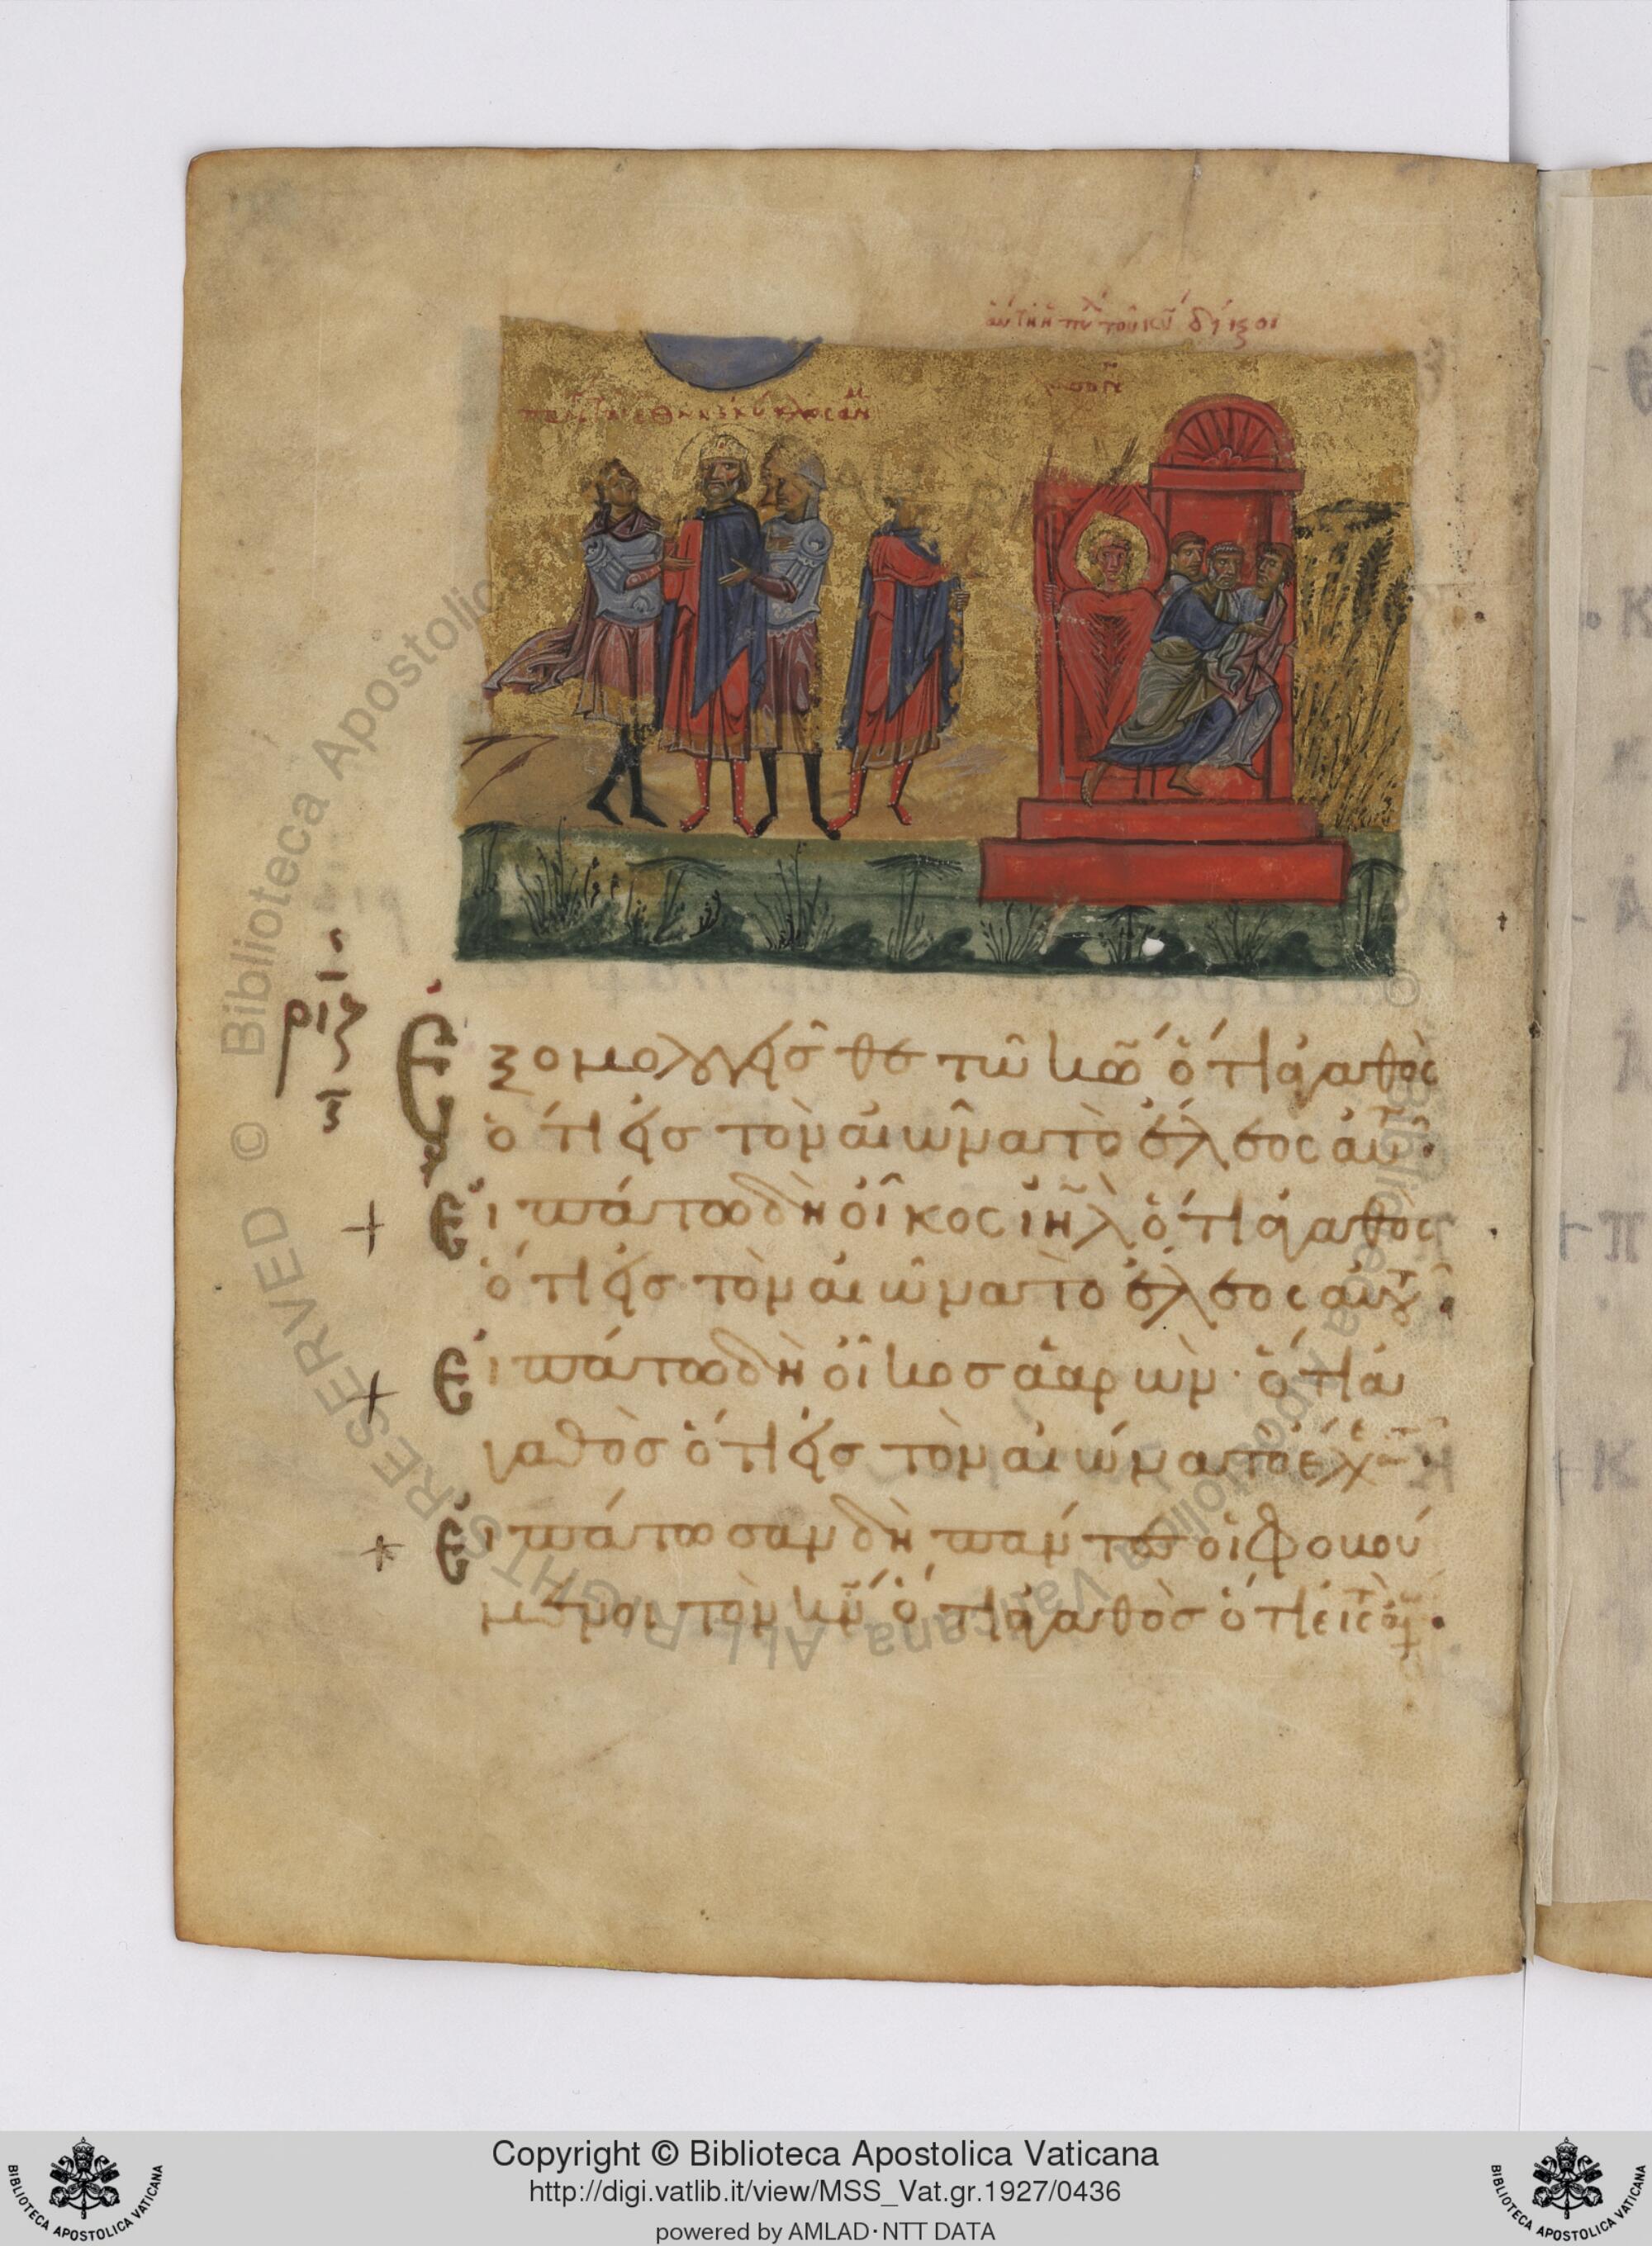 αὕτη ἡ πύλη τοῦ κυ δι
πάντα τὰ ἔθνη ἐκύκλωσάν με
ριζ
Ἐξομολογεῖσθε τῷ κω ὅτι ἀγαθὸς
ὅτι εἰς τὸν αἰῶνα τὸ ἔλεος αὐτοῦ·
Εἰπάτω δὴ οἶκος ιηλ ὅτι ἀγαθὸς
ὅτι εἰς τὸν αἰῶνα τὸ ἔλεος αὐτοῦ·
Εἰπάτω δὴ οἶκος ἀαρὼν· ὅτι ἀ
γαθὸς ὅτι εἰς τὸν αἰῶνα τὸ ἔλε
Εἰπάτωσαν δὴ πάντες οἱ φοβού
μενοι τὸν κν ὅτι ἀγαθὸς ὅτι εἰς τὸν
© Biblioteca Apostolica Vaticana ALL RIGHTS RESERVED
Copyright © Biblioteca Apostolica Vaticana
http://digi.vatlib.it/view/MSS_Vat.gr.1927/0436
powered by AMLAD·NTT DATA
BIBLIOTECA APOSTOLICA VATICANA
BIBLIOTECA APOSTOLICA VATICANA